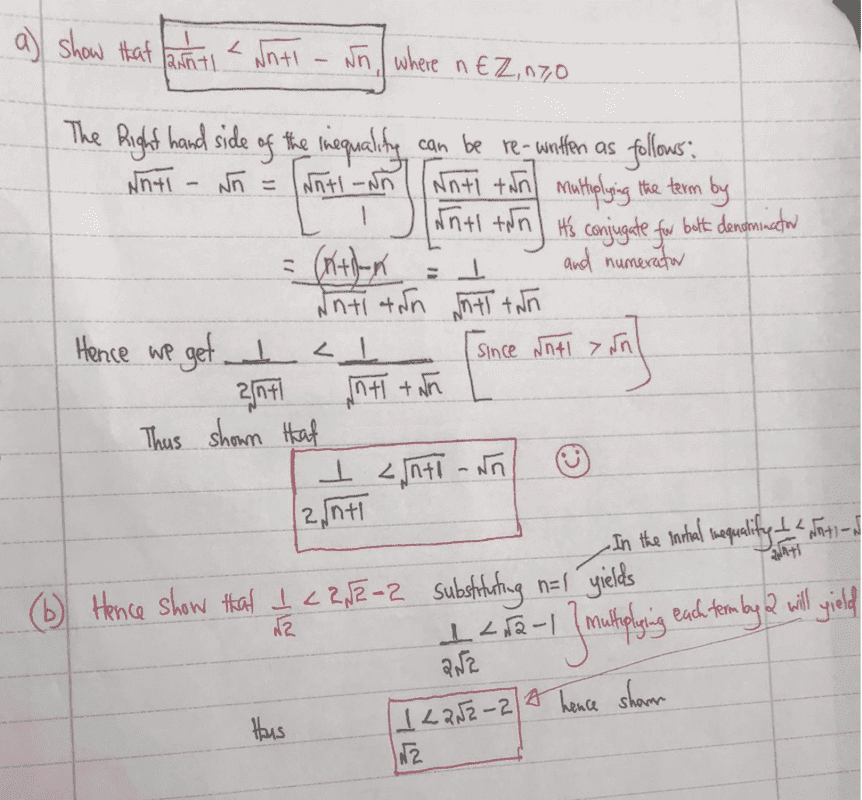 a) Show that 1/(2√n+1) < √n+1 - √n, where n ∈ ℤ, n ⩾ 0
The Right hand side of the inequality can be re-written as follows:
√n+1 - √n = [(√n+1 - √n)/1] [(√n+1 + √n)/(√n+1 + √n)] Multiplying the term by
it's conjugate for both denominator
and numerator
= ((n+1)-n)/(√n+1 + √n) = 1/(√n+1 + √n)
Hence we get 1/(2√n+1) < 1/(√n+1 + √n) [since √n+1 > √n]
Thus shown that
1/(2√n+1) < √n+1 - √n ☺
In the initial inequality 1/(2√n+1) < √n+1 - √
(b) Hence show that 1/√2 < 2√2 - 2 Substituting n=1 yields
1/(2√2) < √2 - 1 } Multiplying each term by 2 will yield
thus 1/√2 < 2√2 - 2 hence shown